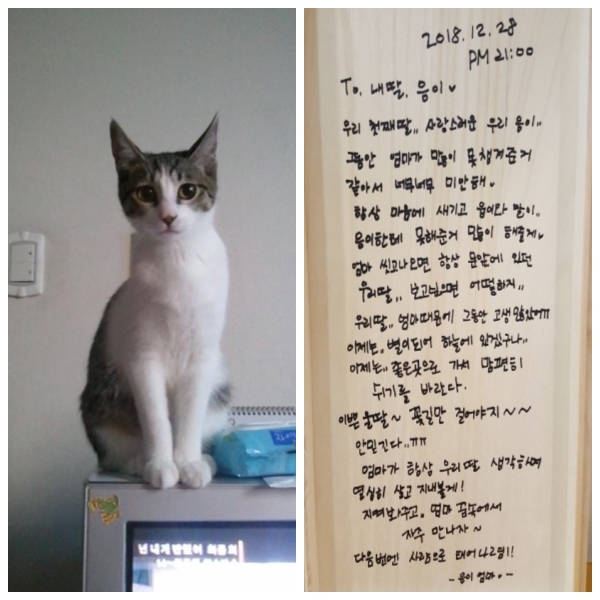 넌 내게 반했어 최종회
2018.12.28
PM 21:00
To. 내딸, 응이♥
우리 첫째딸,, 사랑스러운 우리 응이,,
그동안 엄마가 많이 못챙겨준거
같아서 너무너무 미안해.
항상 마음에 새기고 율이랑 많이,,
응이한테 못해준거 많이 해줄게♥
엄마 씻고나오면 항상 문앞에 있던
우리딸,, 보고싶으면 어떻하지,,
우리딸,, 엄마때문에 그동안 고생 많았어ㅠㅠ
이제는,, 별이되어 하늘에 있겠구나,,
이제는,, 좋은곳으로 가서 맘편히
쉬기를 바란다.
이쁜 울딸~ 꽃길만 걸어야지~~
안믿긴다..ㅠㅠ
엄마가 항상 우리딸 생각하며
열심히 살고 지내볼게!
지켜봐주고, 엄마 꿈속에서
자주 만나자~
다음번엔 사람으로 태어나그레이!
- 응이 엄마. -